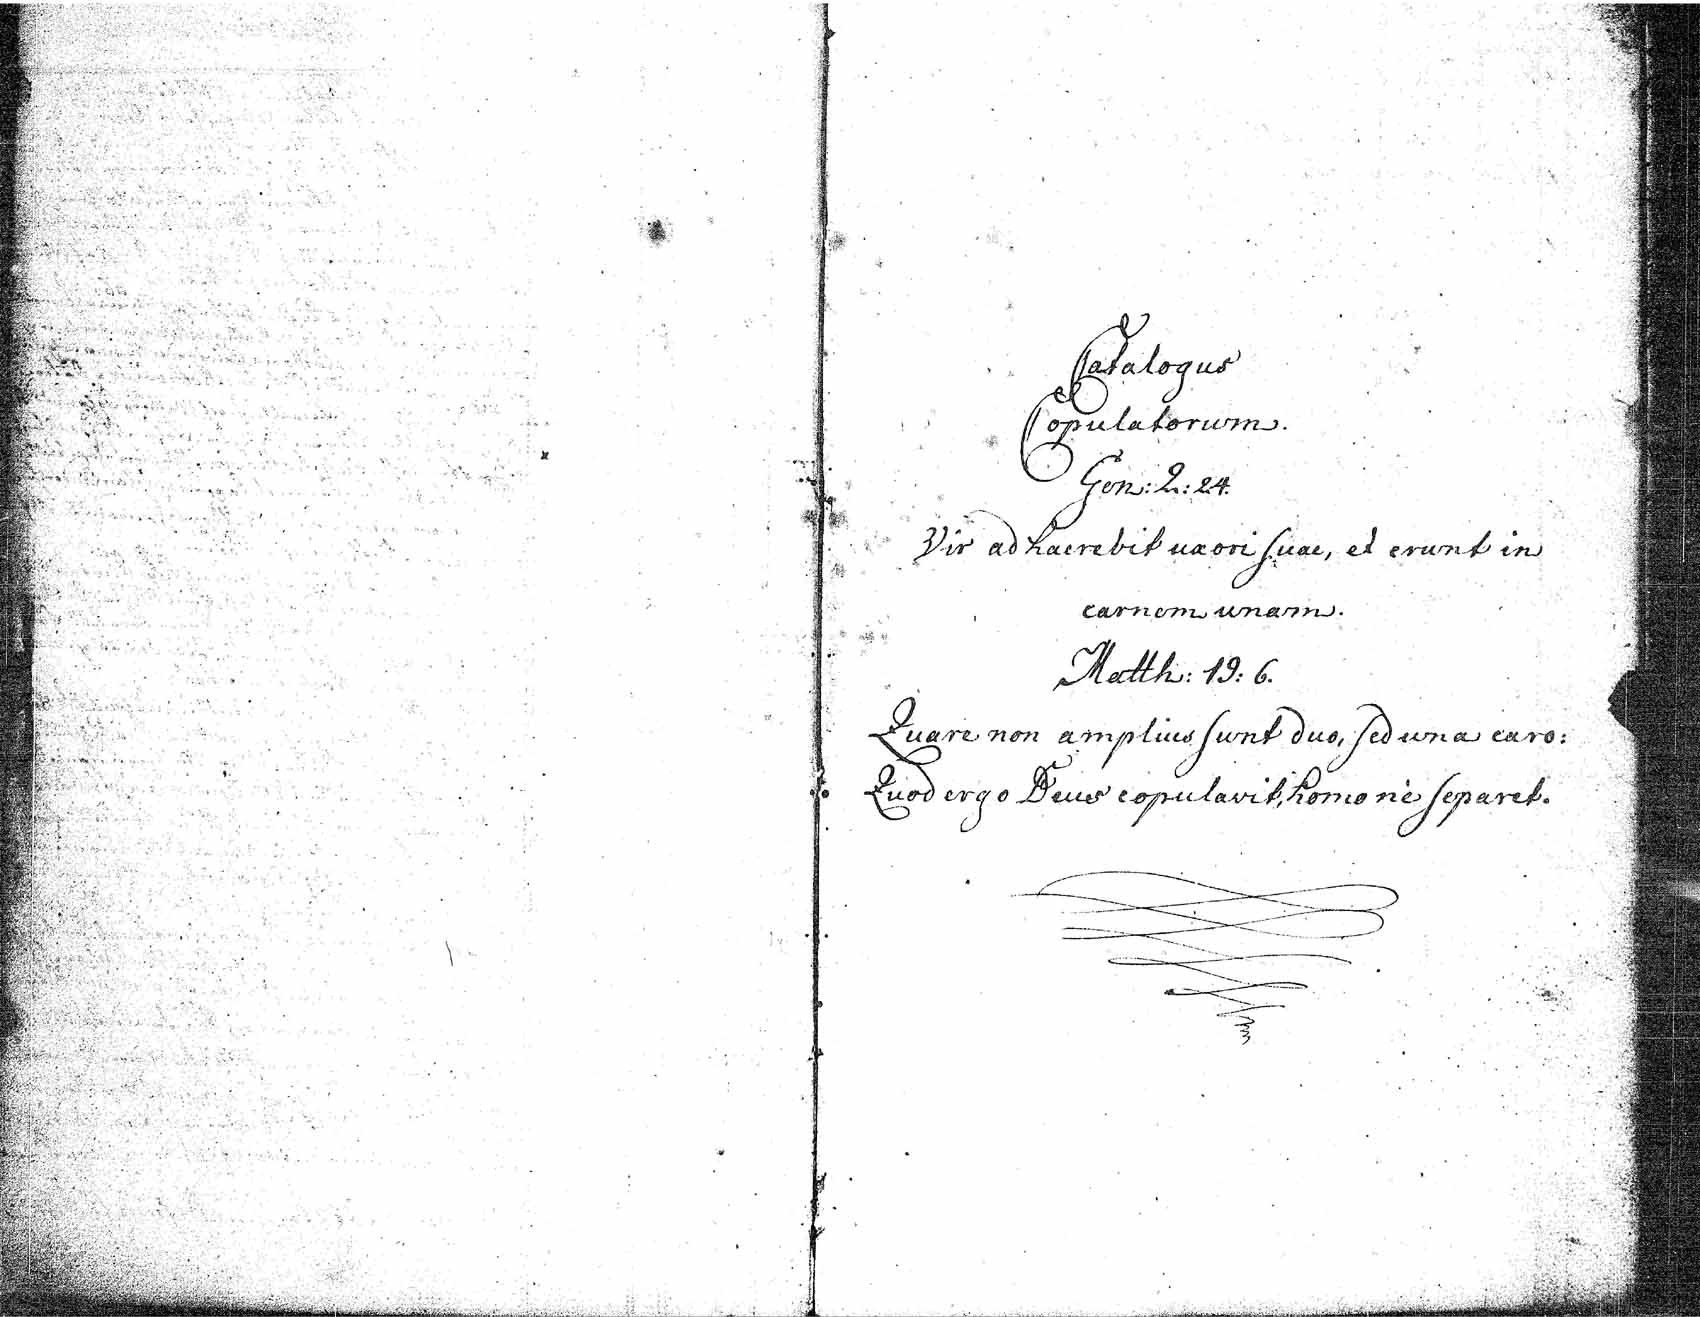 Catalogus
Copulatorum.
Gen: 2: 24.
Vir adhaerebit uxori suae, et erunt in
carnem unam.
Matth: 19: 6.
Quare non amplius sunt duo, sed una caro:
Quod ergo Deus copulavit, homo nè separet.